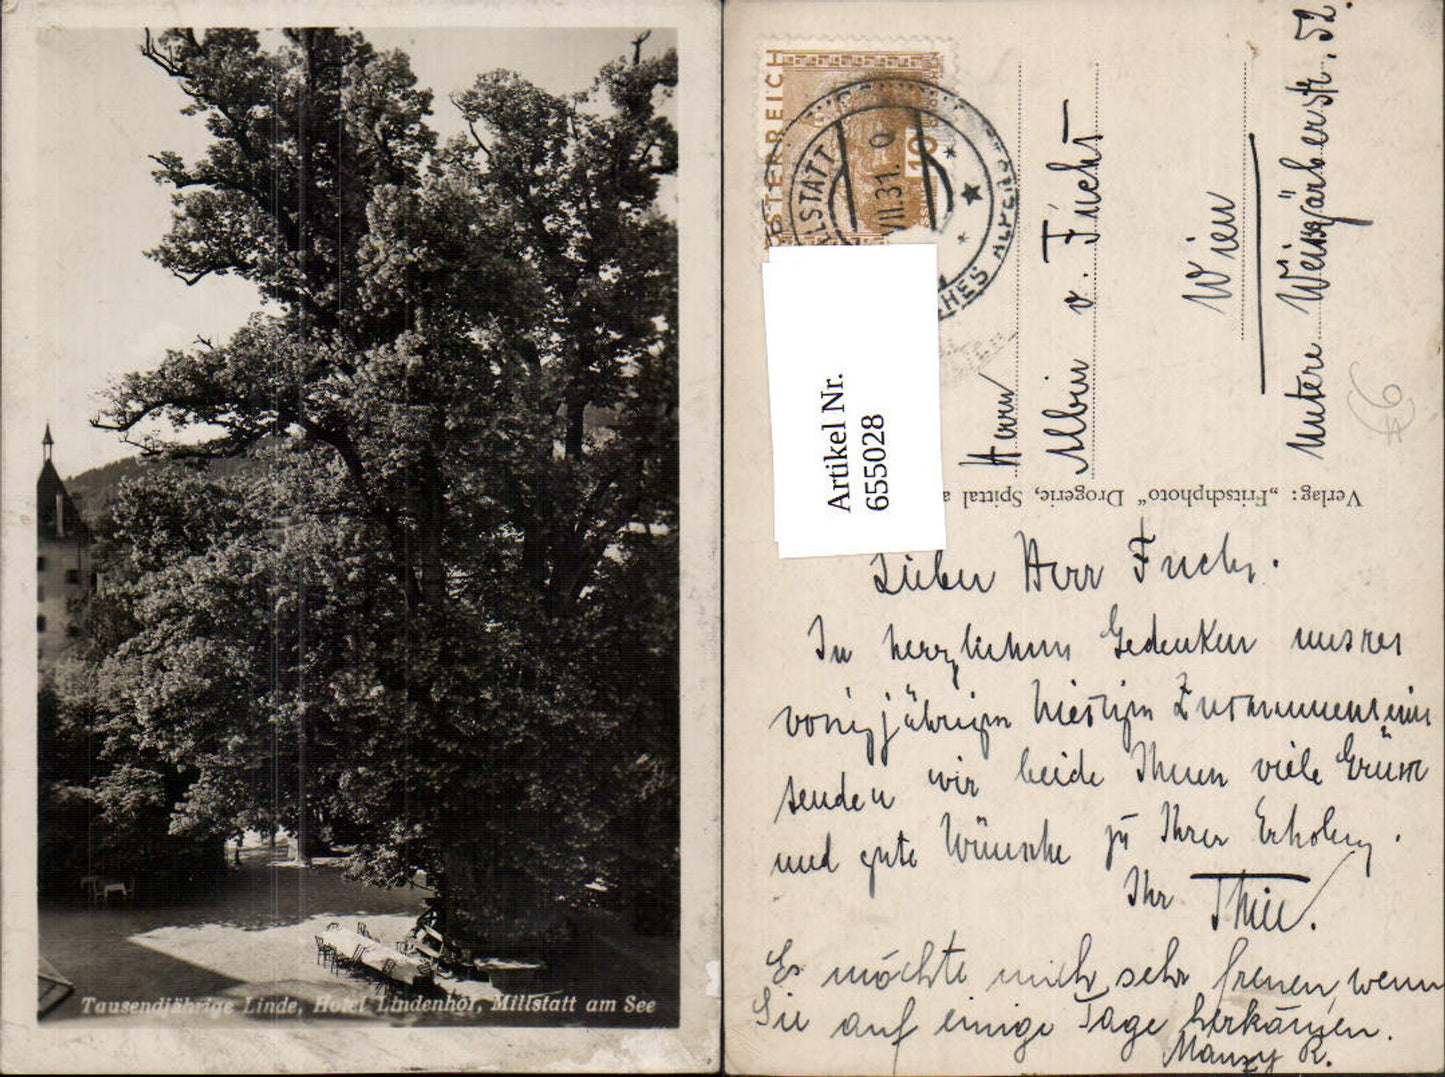 Tausendjährige Linde, Hotel Lindenhof, Millstatt am See
ÖSTERREICH
10
LLSTATT
VII.31.
Artikel Nr.
655028
Herrn
Albin v. Fuchs
Wien
Untere Weissgärberstr. 52.
Verlag: „Fritschphoto“ Drogerie, Spittal a
Lieber Herr Fuchs.
In herzlichem Gedenken unsres
vorigjährigen hiesigen Zusammenseins
senden wir beide Ihnen viele Grüsse
und gute Wünsche zu Ihrer Erholung.
Ihr
Es möchte mich sehr freuen, wenn
Sie auf einige Tage herkämen.
R.